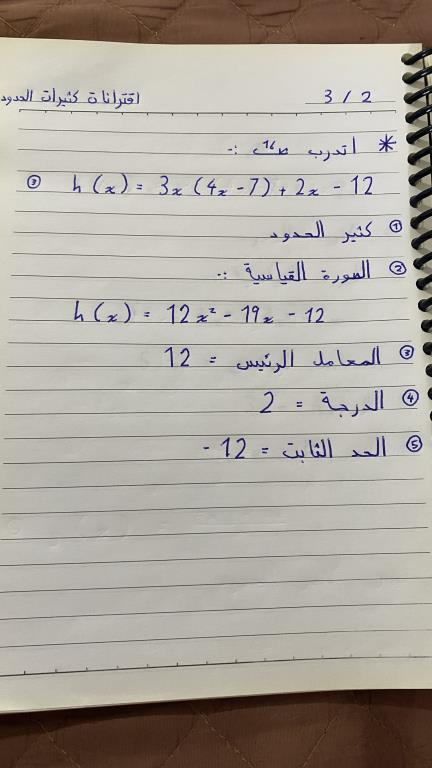 3 / 2 اقترانات كثيرات الحدود
* أتدرب ص١٦ :-
③ h(x) = 3x(4x - 7) + 2x - 12
① كثير الحدود
② الصورة القياسية :-
h(x) = 12x² - 19x - 12
③ المعامل الرئيس = 12
④ الدرجة = 2
⑤ الحد الثابت = 12 -